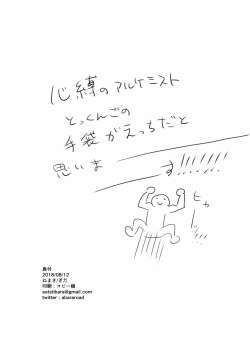 心縛のアルケミスト
とっくんごの
手袋がえっちだと
思いま
す!!!!!!
ヒョ
奥付
2018/08/12
ねまき/ぎだ
印刷：コピー機
twitter : abararoad